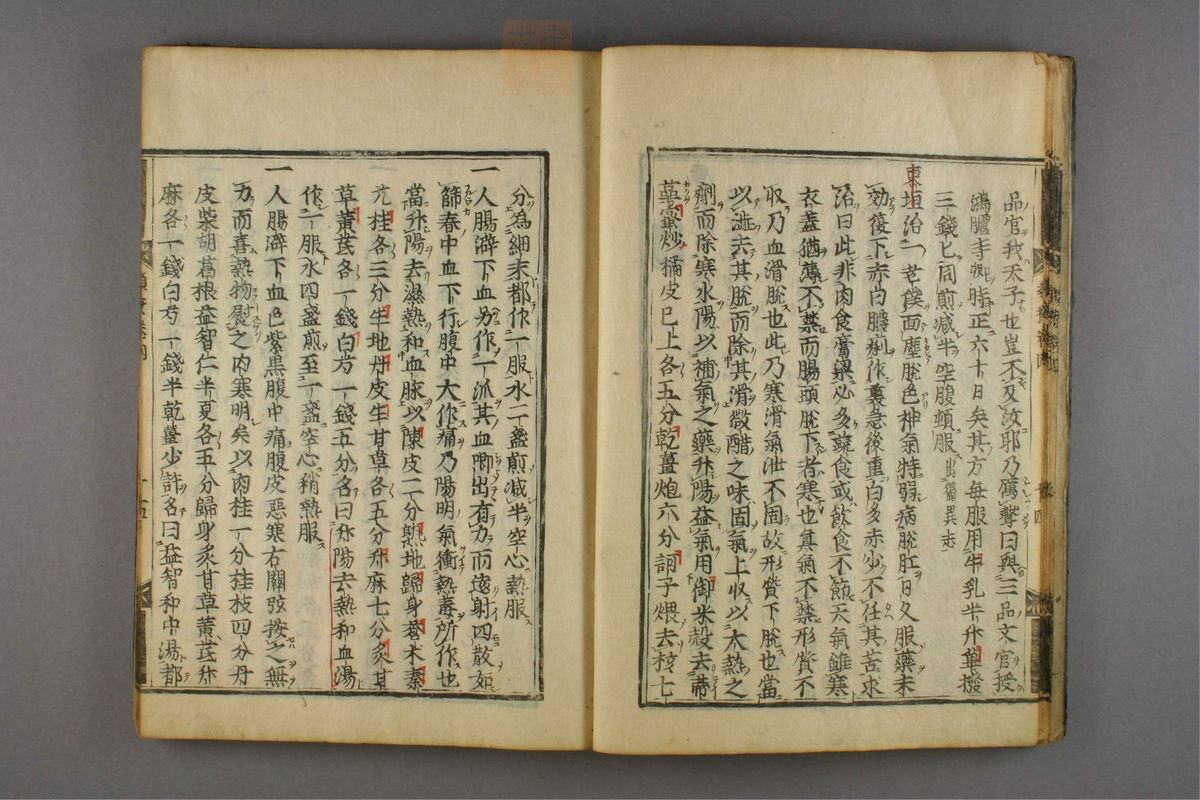 品官我天子也豈不及汝耶乃厲聲曰與三品文官授
鴻臚寺卿時正六十日矣其方每服用牛乳半升蓽撥
三錢匕同煎減半空腹頓服出獨異志
東垣治一老僕面塵脫色神氣特弱病脫肛日久服藥未
効復下赤白膿痢作裏急後重白多赤少不任其苦求
治曰此非肉食膏粱必多蔬食或飲食不節天氣雖寒
衣蓋猶薄不禁而腸頭脫下者寒也真氣不禁形質不
収乃血滑脫也此乃寒滑氣泄不固故形質下脫也當
以澁去其脫而除其滑微醋之味固氣上收以大熱之
劑而除寒水陽以補氣之藥升陽益氣用御米殼去蒂
萼蜜炒橘皮已上各五分乾薑炮六分訶子煨去核七
分為細末都作二服水二盞煎減半空心熱服
一人腸澼下血另作一派其血唧出有力而遠射四散如
篩春中血下行腹中大作痛乃陽明氣衝熱毒所作也
當升陽去濕熱和血脉以陳皮二分熟地歸身蒼术秦
艽桂各三分生地丹皮生甘草各五分升麻七分炙甘
草黃芪各一錢白芍一錢五分名曰升陽去熱和血湯
作一服水四盞煎至一盞空心稍熱服
一人腸澼下血色紫黑腹中痛腹皮惡寒右關弦按之無
力而喜熱物熨之内寒明矣以肉桂一分桂枝四分丹
皮柴胡葛根益智仁半夏各五分歸身炙甘草黃芪升
麻各一錢白芍一錢半乾薑少許名曰益智和中湯都